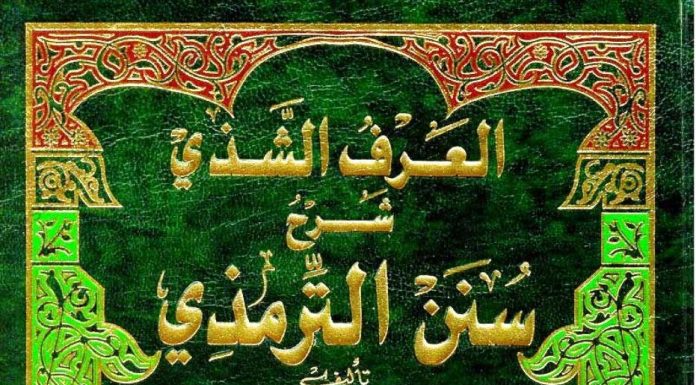 العَرْفُ الشَّذِي
شَرْحُ
سُنَنِ التِّرمذِي
تأليف